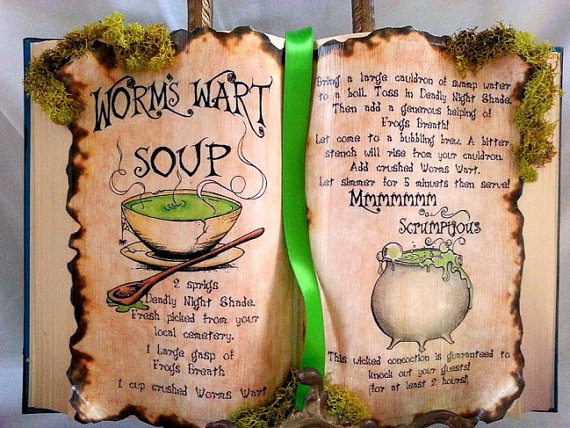 WORM'S WART
SOUP
2 sprigs
Deadly Night Shade.
Fresh picked from your
local cemetery.
1 Large gasp of
Frogs Breath
1 cup crushed Worms Wart
Bring a large cauldron of swamp water
to a boil. Toss in Deadly Night Shade.
Then add a generous helping of
Frogs Breath!
Let come to a bubbling brew. A bitter
stench will rise from your cauldron.
Add crushed Worms Wart.
Let simmer for 5 minuets then serve!
Mmmmmmm
Scrumptious
This wicked concoction is guaranteed to
knock out your guests!
(for at least 2 hours)